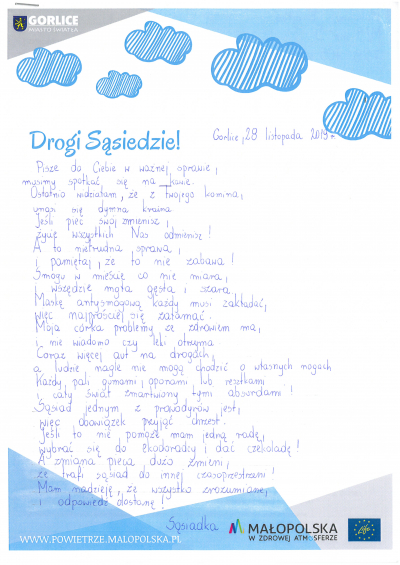 GORLICE
MIASTO ŚWIATŁA
Drogi Sąsiedzie!
Gorlice, 28 listopada 2019 r.
Piszę do Ciebie w ważnej sprawie,
musimy spotkać się na kawie.
Ostatnio widziałam, że z Twojego komina,
unosi się dymna kraina
Jeśli piec swój zmienisz,
życie wszystkich Nas odmienisz!
A to nietrudna sprawa,
i pamiętaj, że to nie zabawa!
Smogu w mieście co nie miara,
i wszędzie mgła gęsta i szara.
Maskę antysmogową każdy musi zakładać,
więc najprościej się załamać.
Moja córka problemy ze zdrowiem ma,
i nie wiadomo czy leki otrzyma.
Coraz więcej aut na drogach,
a ludzie nagle nie mogą chodzić o własnych nogach
Każdy pali gumami, oponami lub resztkami,
i cały świat zmartwiony tymi absurdami!
Sąsiad jednym z prowodyrów jest,
więc obowiązek przyjąć chrzest.
Jeśli to nie pomoże mam jedną radę,
wybrać się do ekodoradcy i dać czekoladę!
A zmiana pieca dużo zmieni,
że trafi sąsiad do innej czasoprzestrzeni!
Mam nadzieję, że wszystko zrozumiane,
i odpowiedź dostanę!
Sąsiadka
MAŁOPOLSKA
W ZDROWEJ ATMOSFERZE
life
WWW.POWIETRZE.MALOPOLSKA.PL